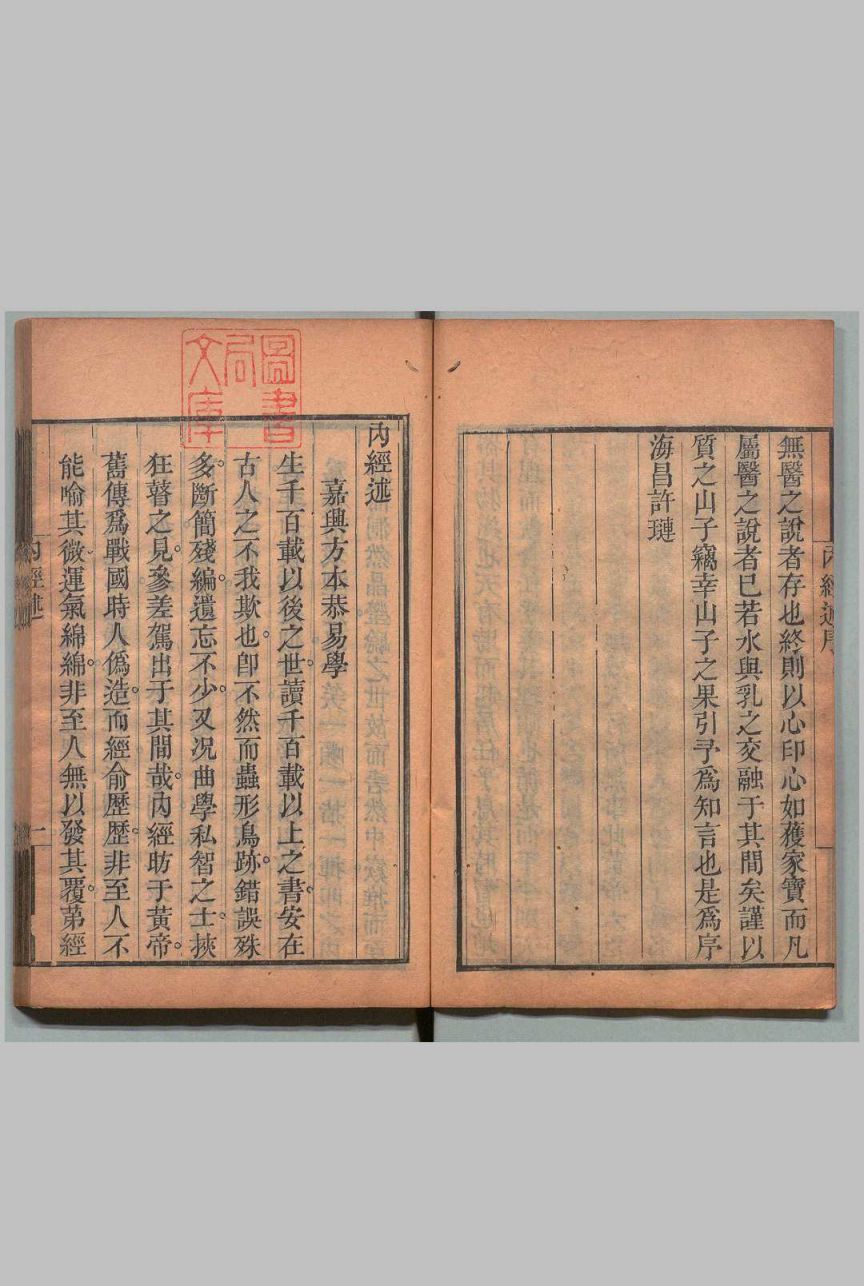 無醫之說者存也終則以心印心如獲家寶而凡
屬醫之說者已若水與乳之交融于其間矣謹以
質之山子竊幸山子之果引予爲知言也是爲序
海昌許璉
內經述序
圖書
局
文庫
內經述
嘉興方本恭易學
生千百載以後之世讀千百載以上之書安在
古人之不我欺也卽不然而蟲形鳥跡錯誤殊
多斷簡殘編遺忘不少又况曲學私智之士挾
狂瞽之見參差駕出于其間哉內經昉于黃帝
舊傳爲戰國時人僞造而經俞歷歷非至人不
能喻其微運氣綿綿非至人無以發其覆苐經
內經述
一